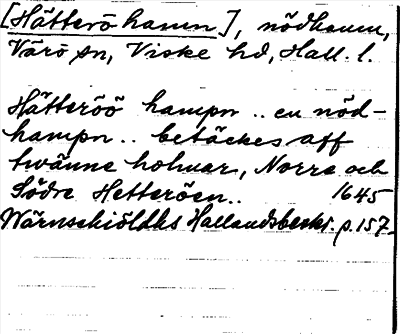 [Hätterö hamn], nödhamn,
Värö sn, Viske hd, Hall. l.
Hätteröö hampn .. en nöd-
hampn .. betäckes aff
twänne holmar, Norre och
Södre Hetteröen.. 1645
Wärnschiöldhs Hallandsbeskr. p. 157.